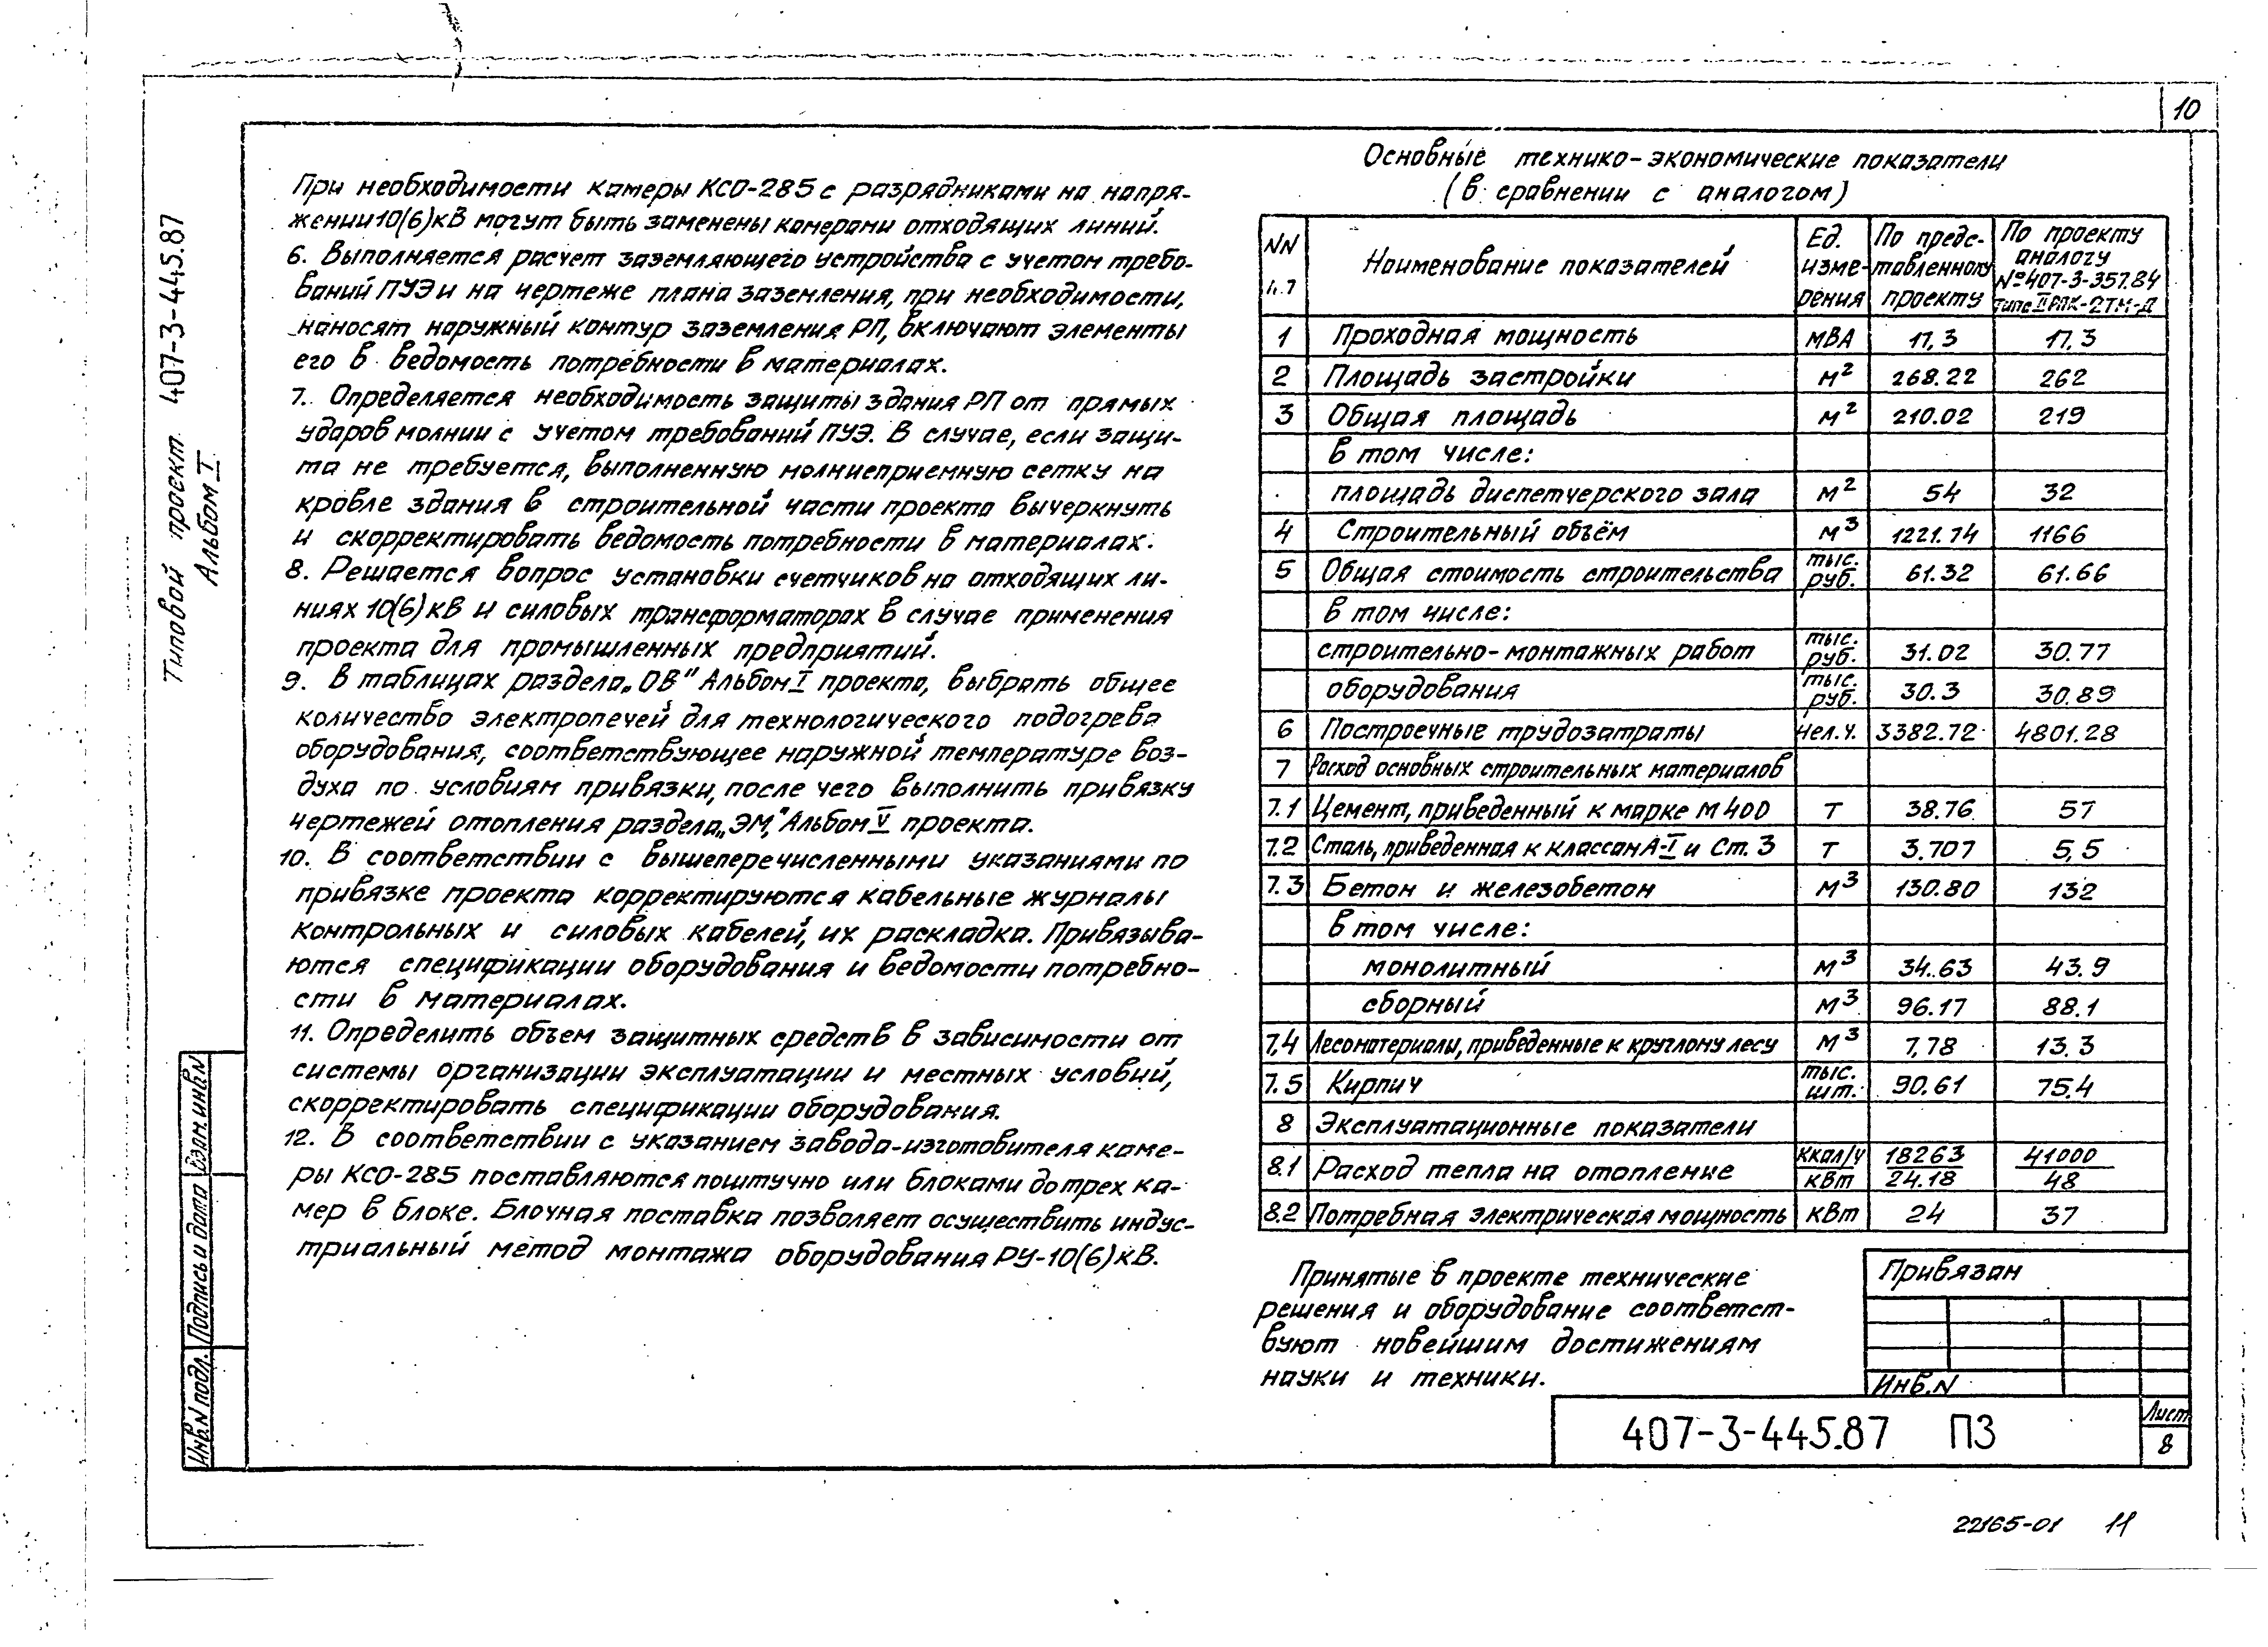 10
Типовой проект 407-3-445.87
Альбом I
При необходимости камеры КСО-285 с разрядниками на напря-
жении 10(6)кВ могут быть заменены камерами отходящих линий.
6. Выполняется расчет заземляющего устройства с учетом требо-
ваний ПУЭ и на чертеже плана заземления, при необходимости,
наносят наружный контур заземления РП, включают элементы
его в ведомость потребности в материалах.
7. Определяется необходимость защиты здания РП от прямых
ударов молнии с учетом требований ПУЭ. В случае, если защи-
та не требуется, выполненную молниеприемную сетку на
кровле здания в строительной части проекта вычеркнуть
и скорректировать ведомость потребности в материалах.
8. Решается вопрос установки счетчиков на отходящих ли-
ниях 10(6)кВ и силовых трансформаторах в случае применения
проекта для промышленных предприятий.
9. В таблицах раздела „ОВ" Альбом I проекта, выбрать общее
количество электропечей для технологического подогрева
оборудования, соответствующее наружной температуре воз-
духа по условиям привязки, после чего выполнить привязку
чертежей отопления раздела „ЭМ," Альбом V проекта.
10. В соответствии с вышеперечисленными указаниями по
привязке проекта корректируются кабельные журналы
контрольных и силовых кабелей, их раскладка. Привязыва-
ются спецификации оборудования и ведомости потребно-
сти в материалах.
11. Определить объем защитных средств в зависимости от
системы организации эксплуатации и местных условий,
скорректировать спецификации оборудования.
12. В соответствии с указанием завода-изготовителя каме-
ры КСО-285 поставляются поштучно или блоками до трех ка-
мер в блоке. Блочная поставка позволяет осуществить индус-
триальный метод монтажа оборудования РУ-10(6)кВ.
Основные технико-экономические показатели
(в сравнении с аналогом)
NN п.п Наименование показателей Ед. изме-рения По предс-тавленному проекту По проекту аналогу №407-3-357.84 типа II РПК-2ТМ-Д
1 Проходная мощность МВА 17,3 17,3
2 Площадь застройки м² 268.22 262
3 Общая площадь м² 210.02 219
в том числе:
площадь диспетчерского зала м² 54 32
4 Строительный объём м³ 1221.74 1166
5 Общая стоимость строительства тыс. руб. 61.32 61.66
в том числе:
строительно-монтажных работ тыс. руб. 31.02 30.77
оборудования тыс. руб. 30.3 30.89
6 Построечные трудозатраты чел.ч. 3382.72 4801.28
7 Расход основных строительных материалов
7.1 Цемент, приведенный к марке М400 Т 38.76 57
7.2 Сталь, приведенная к классам А-I и Ст. 3 Т 3.707 5,5
7.3 Бетон и железобетон м³ 130.80 132
в том числе:
монолитный м³ 34.63 43.9
сборный м³ 96.17 88.1
7.4 Лесоматериалы, приведенные к круглому лесу м³ 7,78 13.3
7.5 Кирпич тыс. шт. 90.61 75.4
8 Эксплуатационные показатели
8.1 Расход тепла на отопление ккал/ч кВт 18263 24.18 41000 48
8.2 Потребная электрическая мощность кВт 24 37
Принятые в проекте технические
решения и оборудование соответст-
вуют новейшим достижениям
науки и техники.
Привязан
Инв.N
407-3-445.87 ПЗ
Лист
8
Взам. инв.N
Подпись и дата
Инв.N подл.
22165-01 11